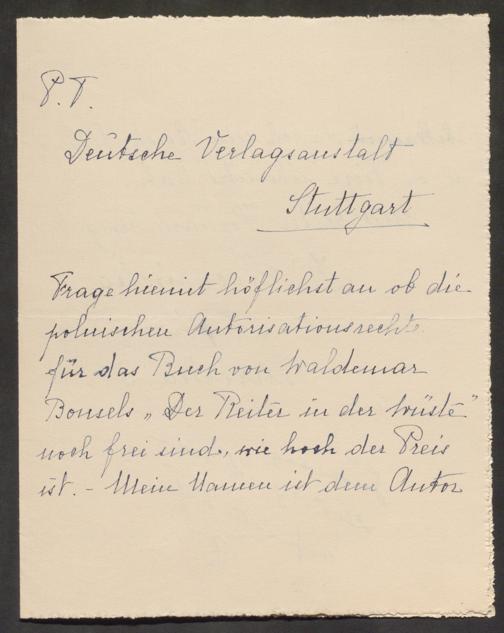 P. T.
Deutsche Verlagsanstalt
Stuttgart
Frage hiemit höflichst an ob die
polnischen Autorisationsrechte
für das Buch von Waldemar
Bonsels „Der Reiter in der Wüste“
noch frei sind, wie hoch der Preis
ist. – Mein Namen ist dem Autor